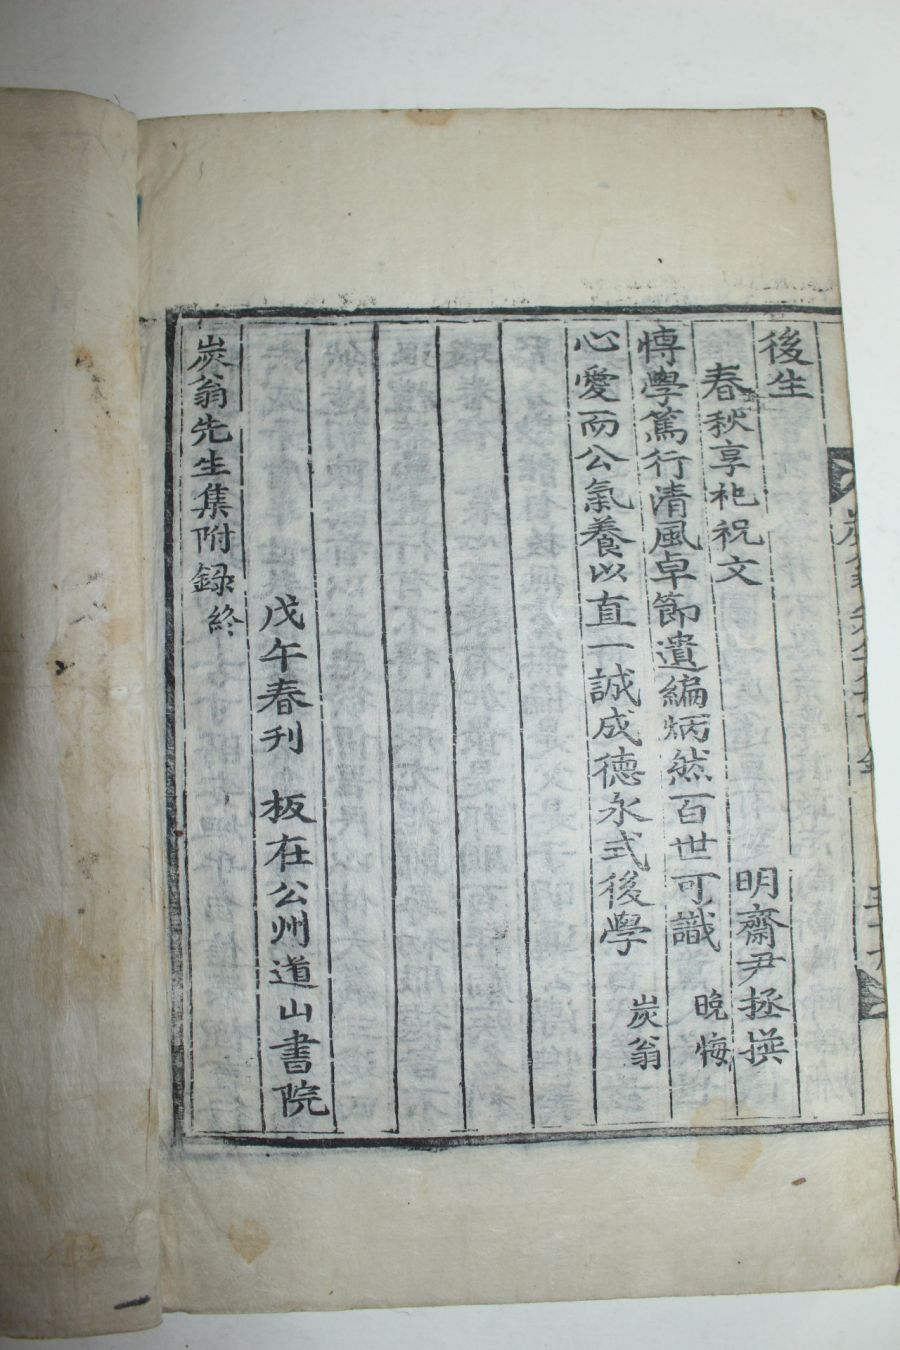 後生
春秋享祀祝文
明齋尹拯撰
博學篤行清風卓節遺編炳然百世可識 晩悔
心愛而公氣養以直一誠成德永式後學 炭翁
戊午春刊 板在公州道山書院
炭翁先生集附録終